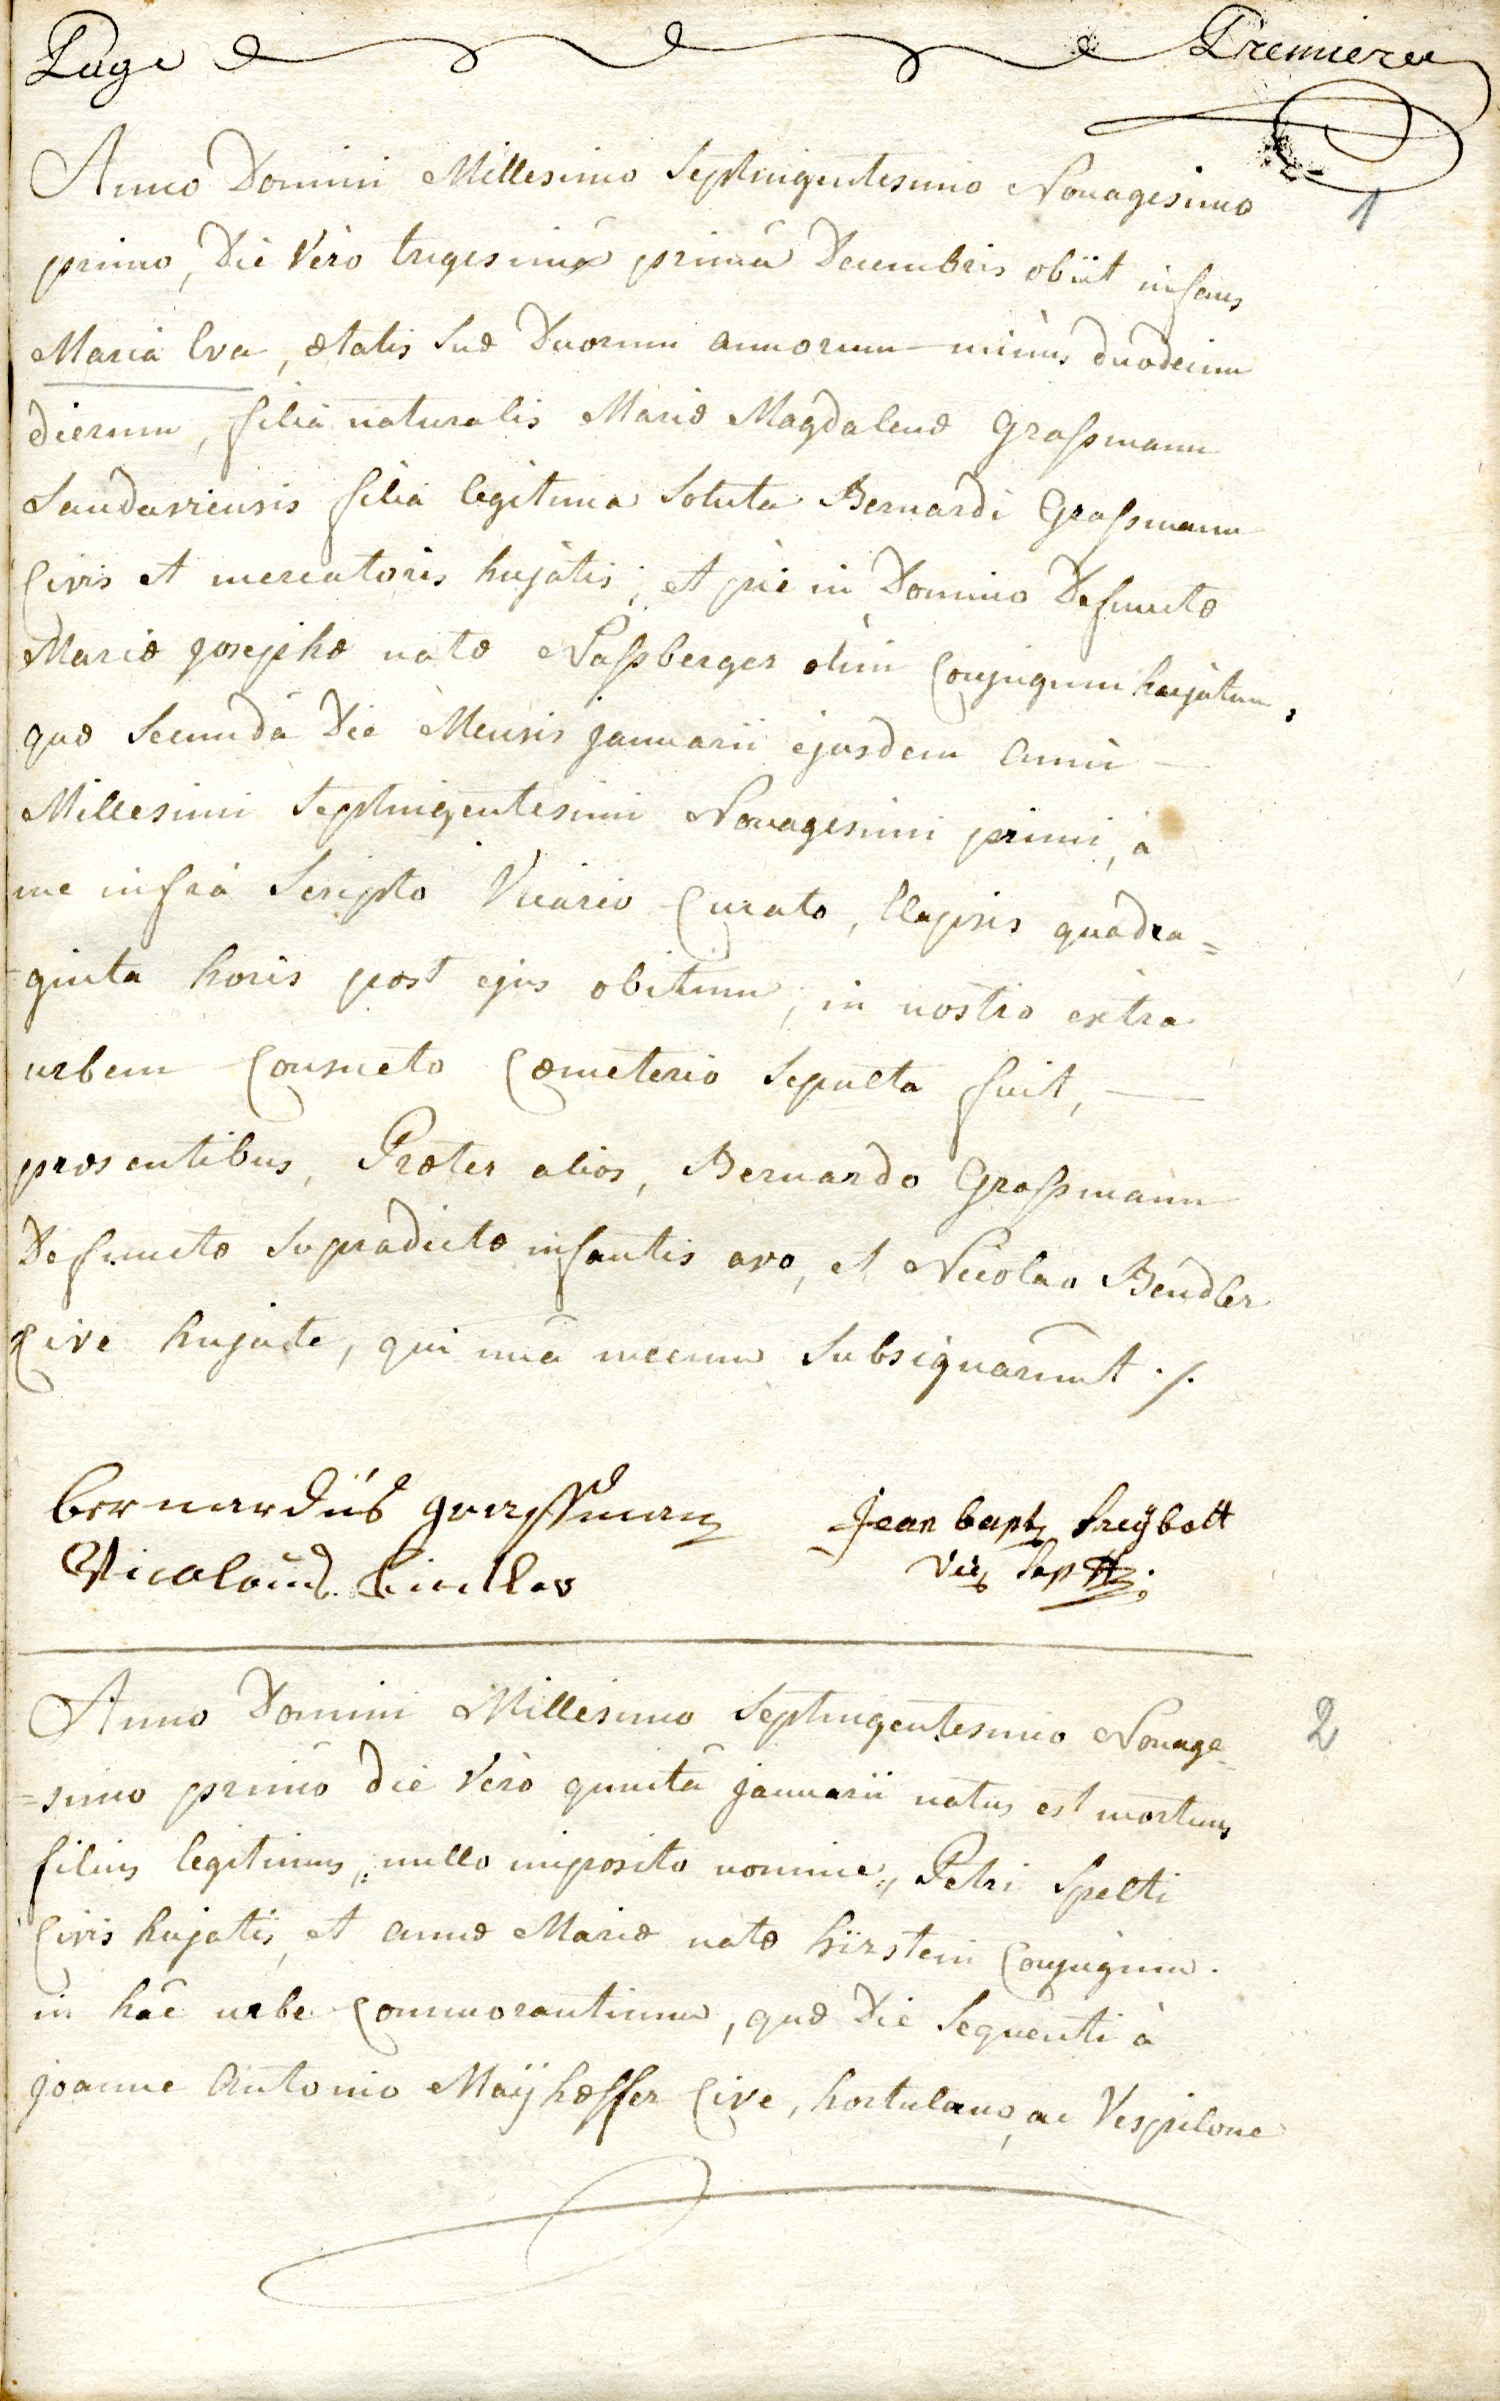 Page Premiere
1
Anno Domini Millesimo Septingentesimo Nonagesimo
primo, Die Verò trigesimâ primâ Decembris obiit infans
Maria Eva, ætatis suæ Duorum annorum minùs duodecim
dierum, filia naturalis Mariæ Magdalenæ Graſsmann
Landaviensis filia legitima soluta Bernardi Graſsmann
Civis et mercatoris hujatis; et piè in Domino Defunctæ
Mariæ josephæ natæ Naſsberger olim Conjugum hujatum,
quæ Secundâ Die Mensis januarii ejusdem anni
Millesimi Septingentesimi Nonagesimi primi, à
me infrà Scripto Vicario Curato, Elapsis quadra=
=ginta horis post ejus obitum, in nostro extra
urbem Consueto Cœmeterio Sepulta fuit,
præsentibus, Præter alios, Bernardo Graſsmann
Defunctæ Supradictæ infantis avo, et Nicolao Bendler
Cive hujate, qui unà mecum Subsignarunt ./.
bernardus graſsmann
Jean bapt freÿbott
Nicolaus
Vic
Anno Domini Millesimo Septingentesimo Nonage=
2
=simo primo die Verò quintâ januarii natus est mortuus
filius legitimus, „nullo imposito nomine„, Petri Spelti
Civis hujatis, et annæ Mariæ natæ hirstein Conjugum.
in hac urbe Commorantium, quæ Die Sequenti à
joanne Antonio Maÿhœffer Cive, hortulano, ac Vespilone